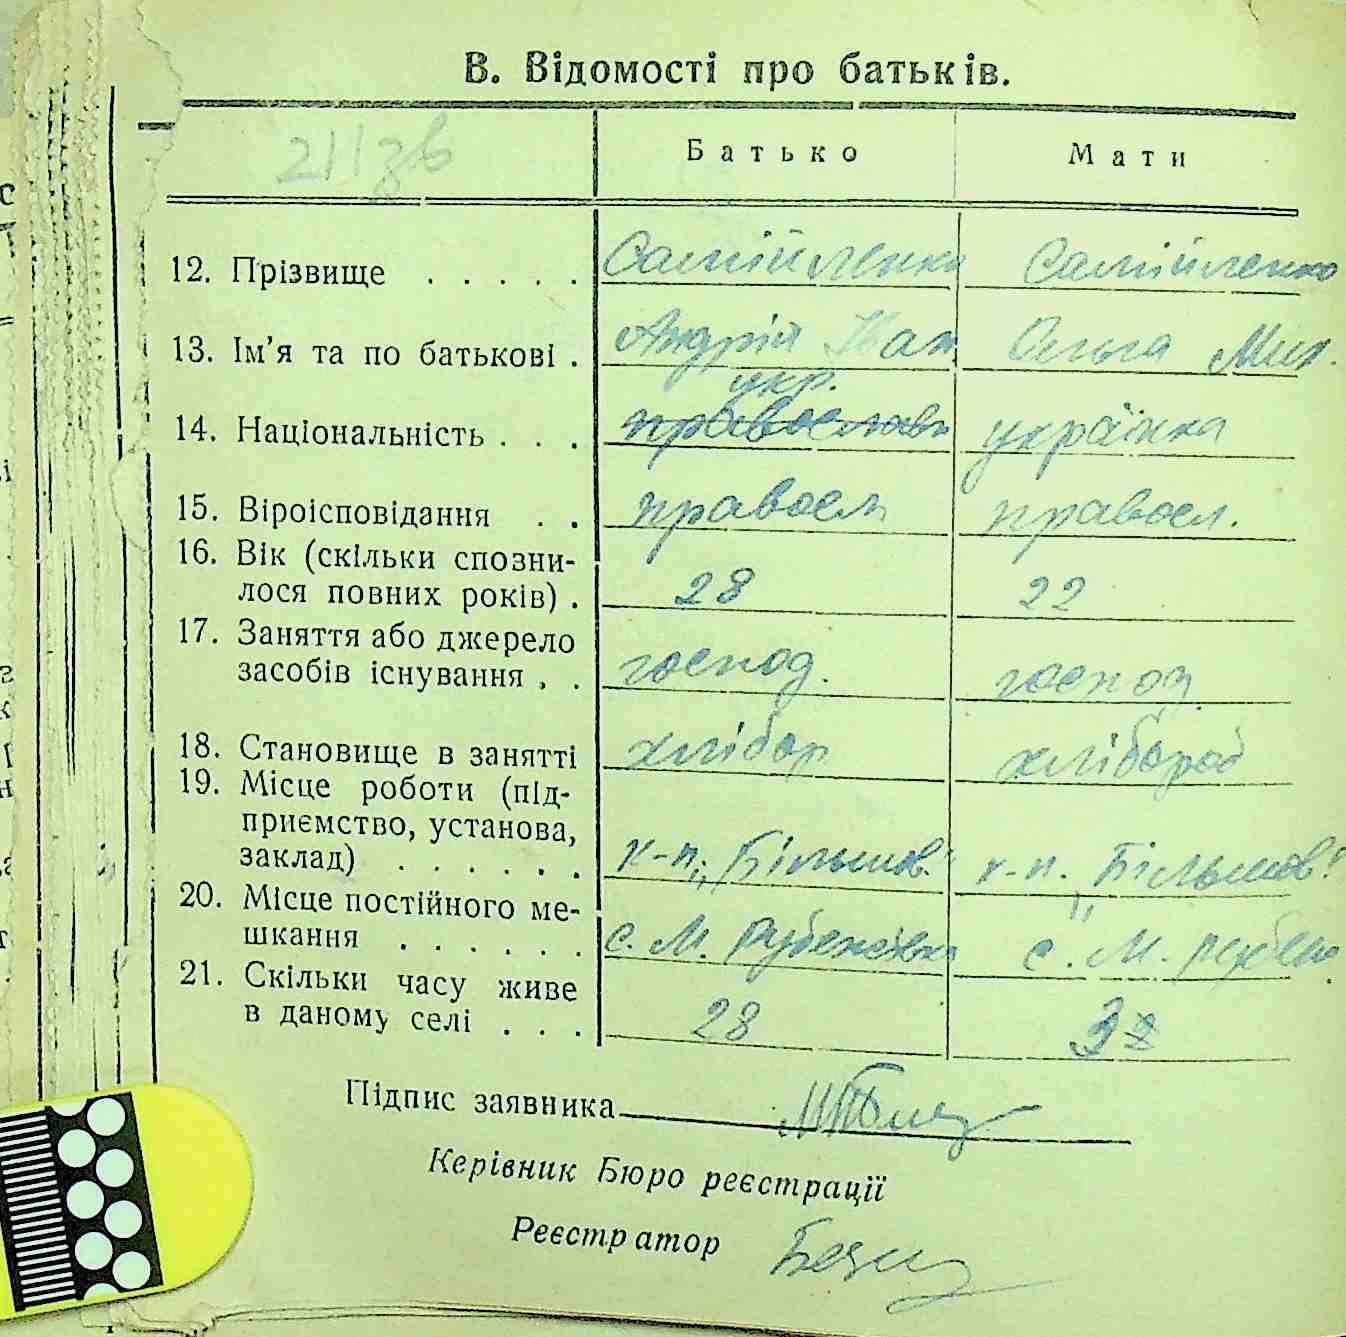 В. Відомості про батьків.
211зв
Батько Мати
12. Прізвище . . . . . Самійленко Самійленко
13. Ім’я та по батькові . Андрій Ольга Мих.
укр.
14. Національність . . . православн українка
15. Віроісповідання . . правосл правосл.
16. Вік (скільки спозни-
лося повних років) . 28 22
17. Заняття або джерело
засобів існування . . господ. господ
18. Становище в занятті хлібор хлібороб
19. Місце роботи (під-
приємство, установа,
заклад) . . . . . . к-п. „Більшов." к-п. „Більшов"
20. Місце постійного ме-
шкання . . . . . . с. М. Рубанівка с. М.
21. Скільки часу живе
в даному селі . . . 28
Підпис заявника
Керівник Бюро реєстрації
Реєстратор